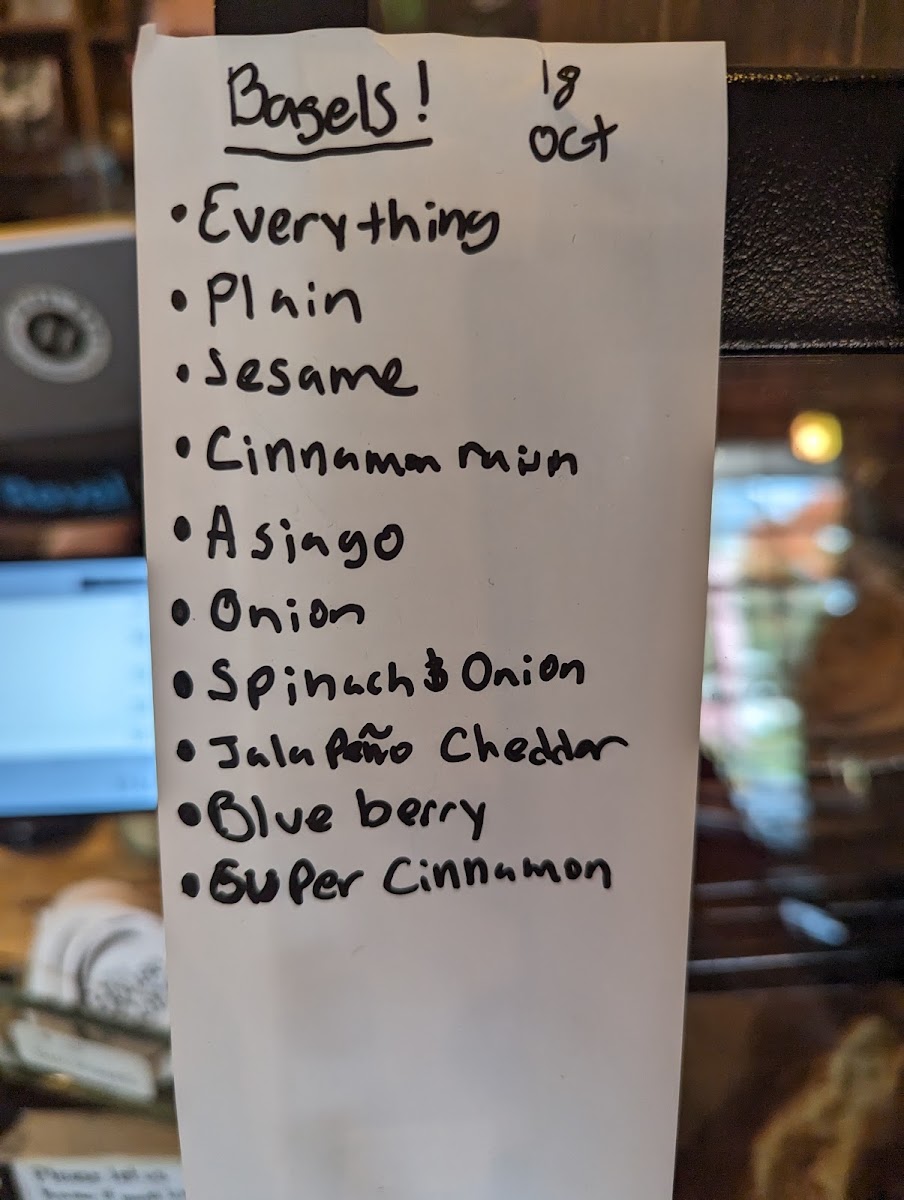 Bagels! 18
Oct
• Everything
• Plain
• Sesame
• Cinnamon raisin
• Asiago
• Onion
• Spinach & Onion
• Jalapeño Cheddar
• Blue berry
• Super Cinnamon
Please let us
know if